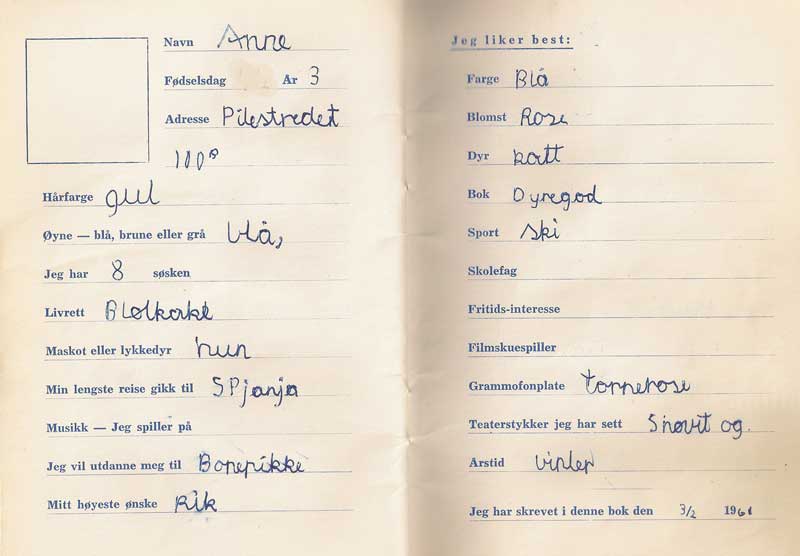 Navn Anne
Fødselsdag År 3
Adresse Pilestredet
110B
Hårfarge gul
Øyne — blå, brune eller grå blå,
Jeg har 8 søsken
Livrett Bløtkake
Maskot eller lykkedyr hun
Min lengste reise gikk til SPjanja
Musikk — Jeg spiller på
Jeg vil utdanne meg til Bonepikke
Mitt høyeste ønske Rik
Jeg liker best:
Farge Blå
Blomst Rose
Dyr katt
Bok Dyregod
Sport ski
Skolefag
Fritids-interesse
Filmskuespiller
Grammofonplate tornerose
Teaterstykker jeg har sett Snøvit og.
Årstid vinter
Jeg har skrevet i denne bok den 3/2 1961